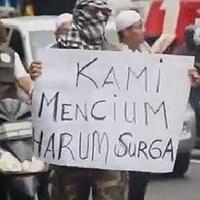 KAMI
MENCIUM
HARUM SURGA